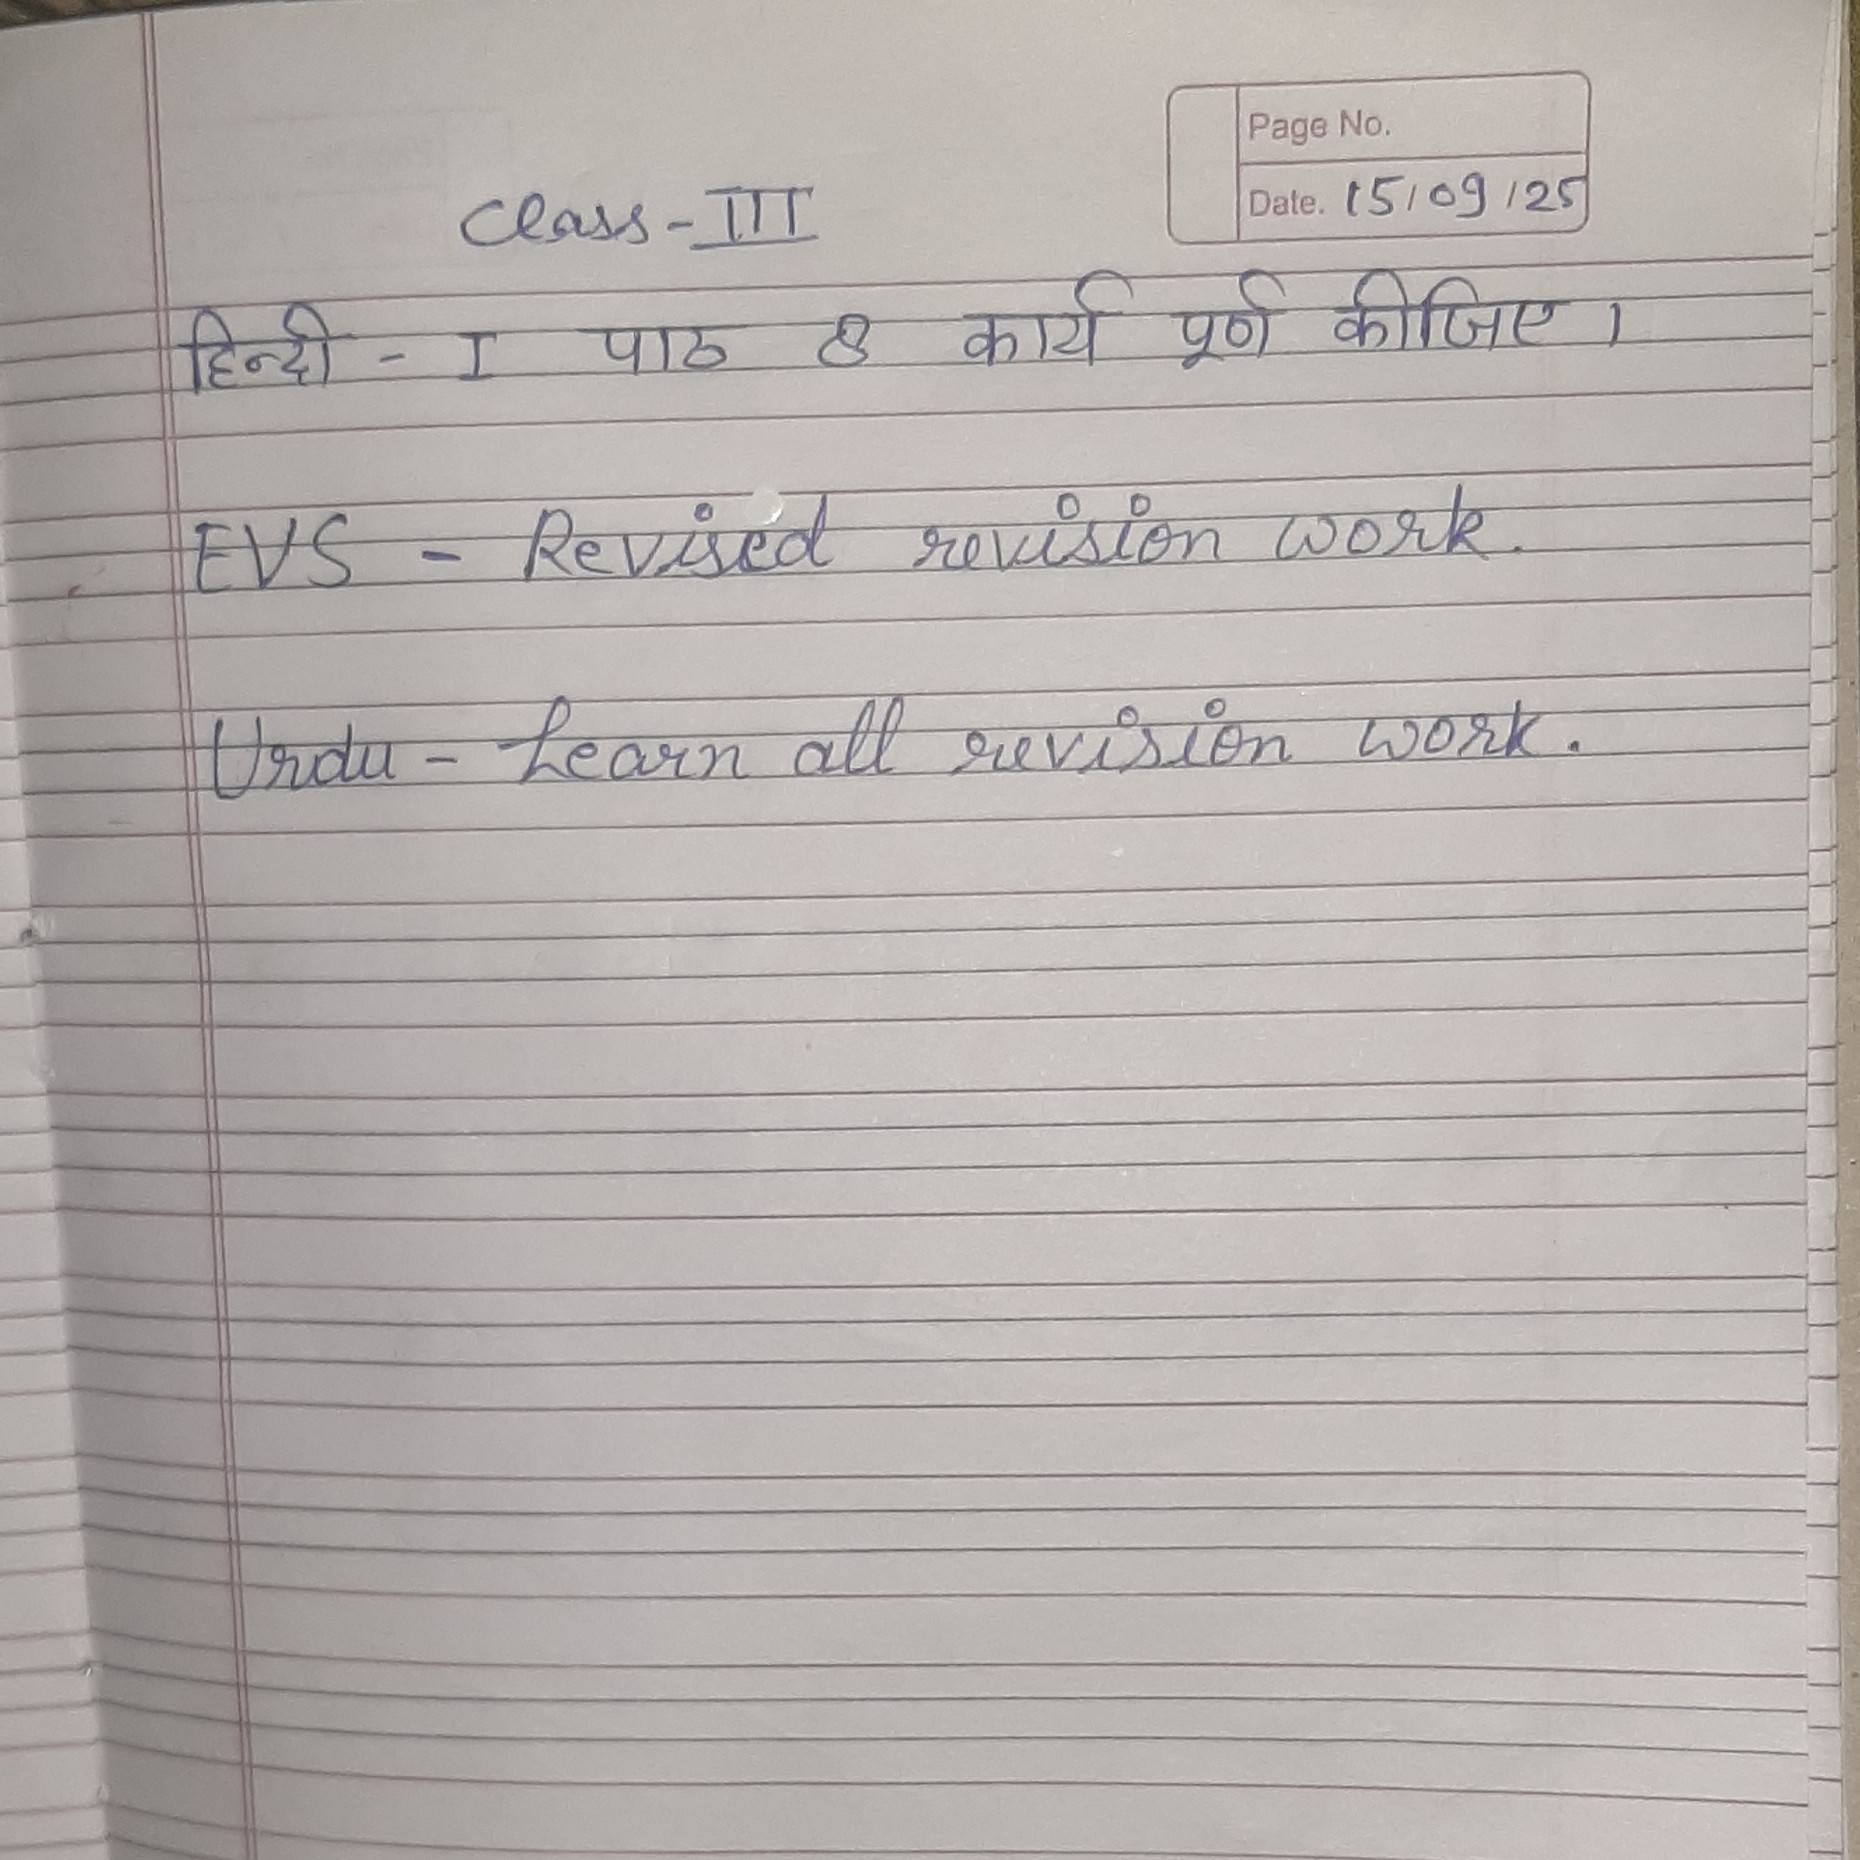 Page No.
Date. 15/09/25
Class-III
हिन्दी - I पाठ 8 कार्य पूर्ण कीजिए।
EVS - Revised revision work.
Urdu - Learn all revision work.